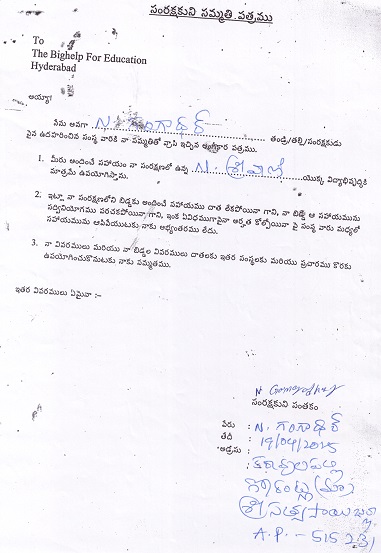 సంరక్షకుని సమ్మతి పత్రము
To
The Bighelp For Education
Hyderabad
అయ్యా!
నేను అనగా N. గంగాధర్ తండ్రి/తల్లి/సంరక్షకుడు
పైన ఉదహరించిన సంస్థ వారికి నా సమ్మతితో వ్రాసి ఇచ్చిన అంగీకార పత్రము.
1. మీరు అందించే సహాయం నా సంరక్షణలో ఉన్న N. శ్రీవాణి యొక్క విద్యాభివృద్ధికి
మాత్రమే ఉపయోగిస్తాము.
2. ఇట్లా నా సంరక్షణలోని బిడ్డకు అందించే సహాయము దాత లేకపోయినా గాని, నా బిడ్డ ఆ సహాయమును
సద్వినియోగము పరచకపోయినా గాని, ఇంక ఏవిధముగానైనా అర్హత కోల్పోయినా పై సంస్థ వారు మధ్యలో
సహాయమును ఆపివేయుటకు నాకు అభ్యంతరము లేదు.
3. నా వివరములు మరియు నా బిడ్డల వివరములు దాతలకు ఇతర సంస్థలకు మరియు ప్రచారము కొరకు
ఉపయోగించుకొనుటకు నాకు సమ్మతము.
ఇతర వివరములు ఏమైనా :-
సంరక్షకుని సంతకం
పేరు : N. గంగాధర్
తేదీ : 19/04/2015
అడ్రసు :
గోరంట్ల (మం)
శ్రీ సత్యసాయి జిల్లా
A.P. - 515 231